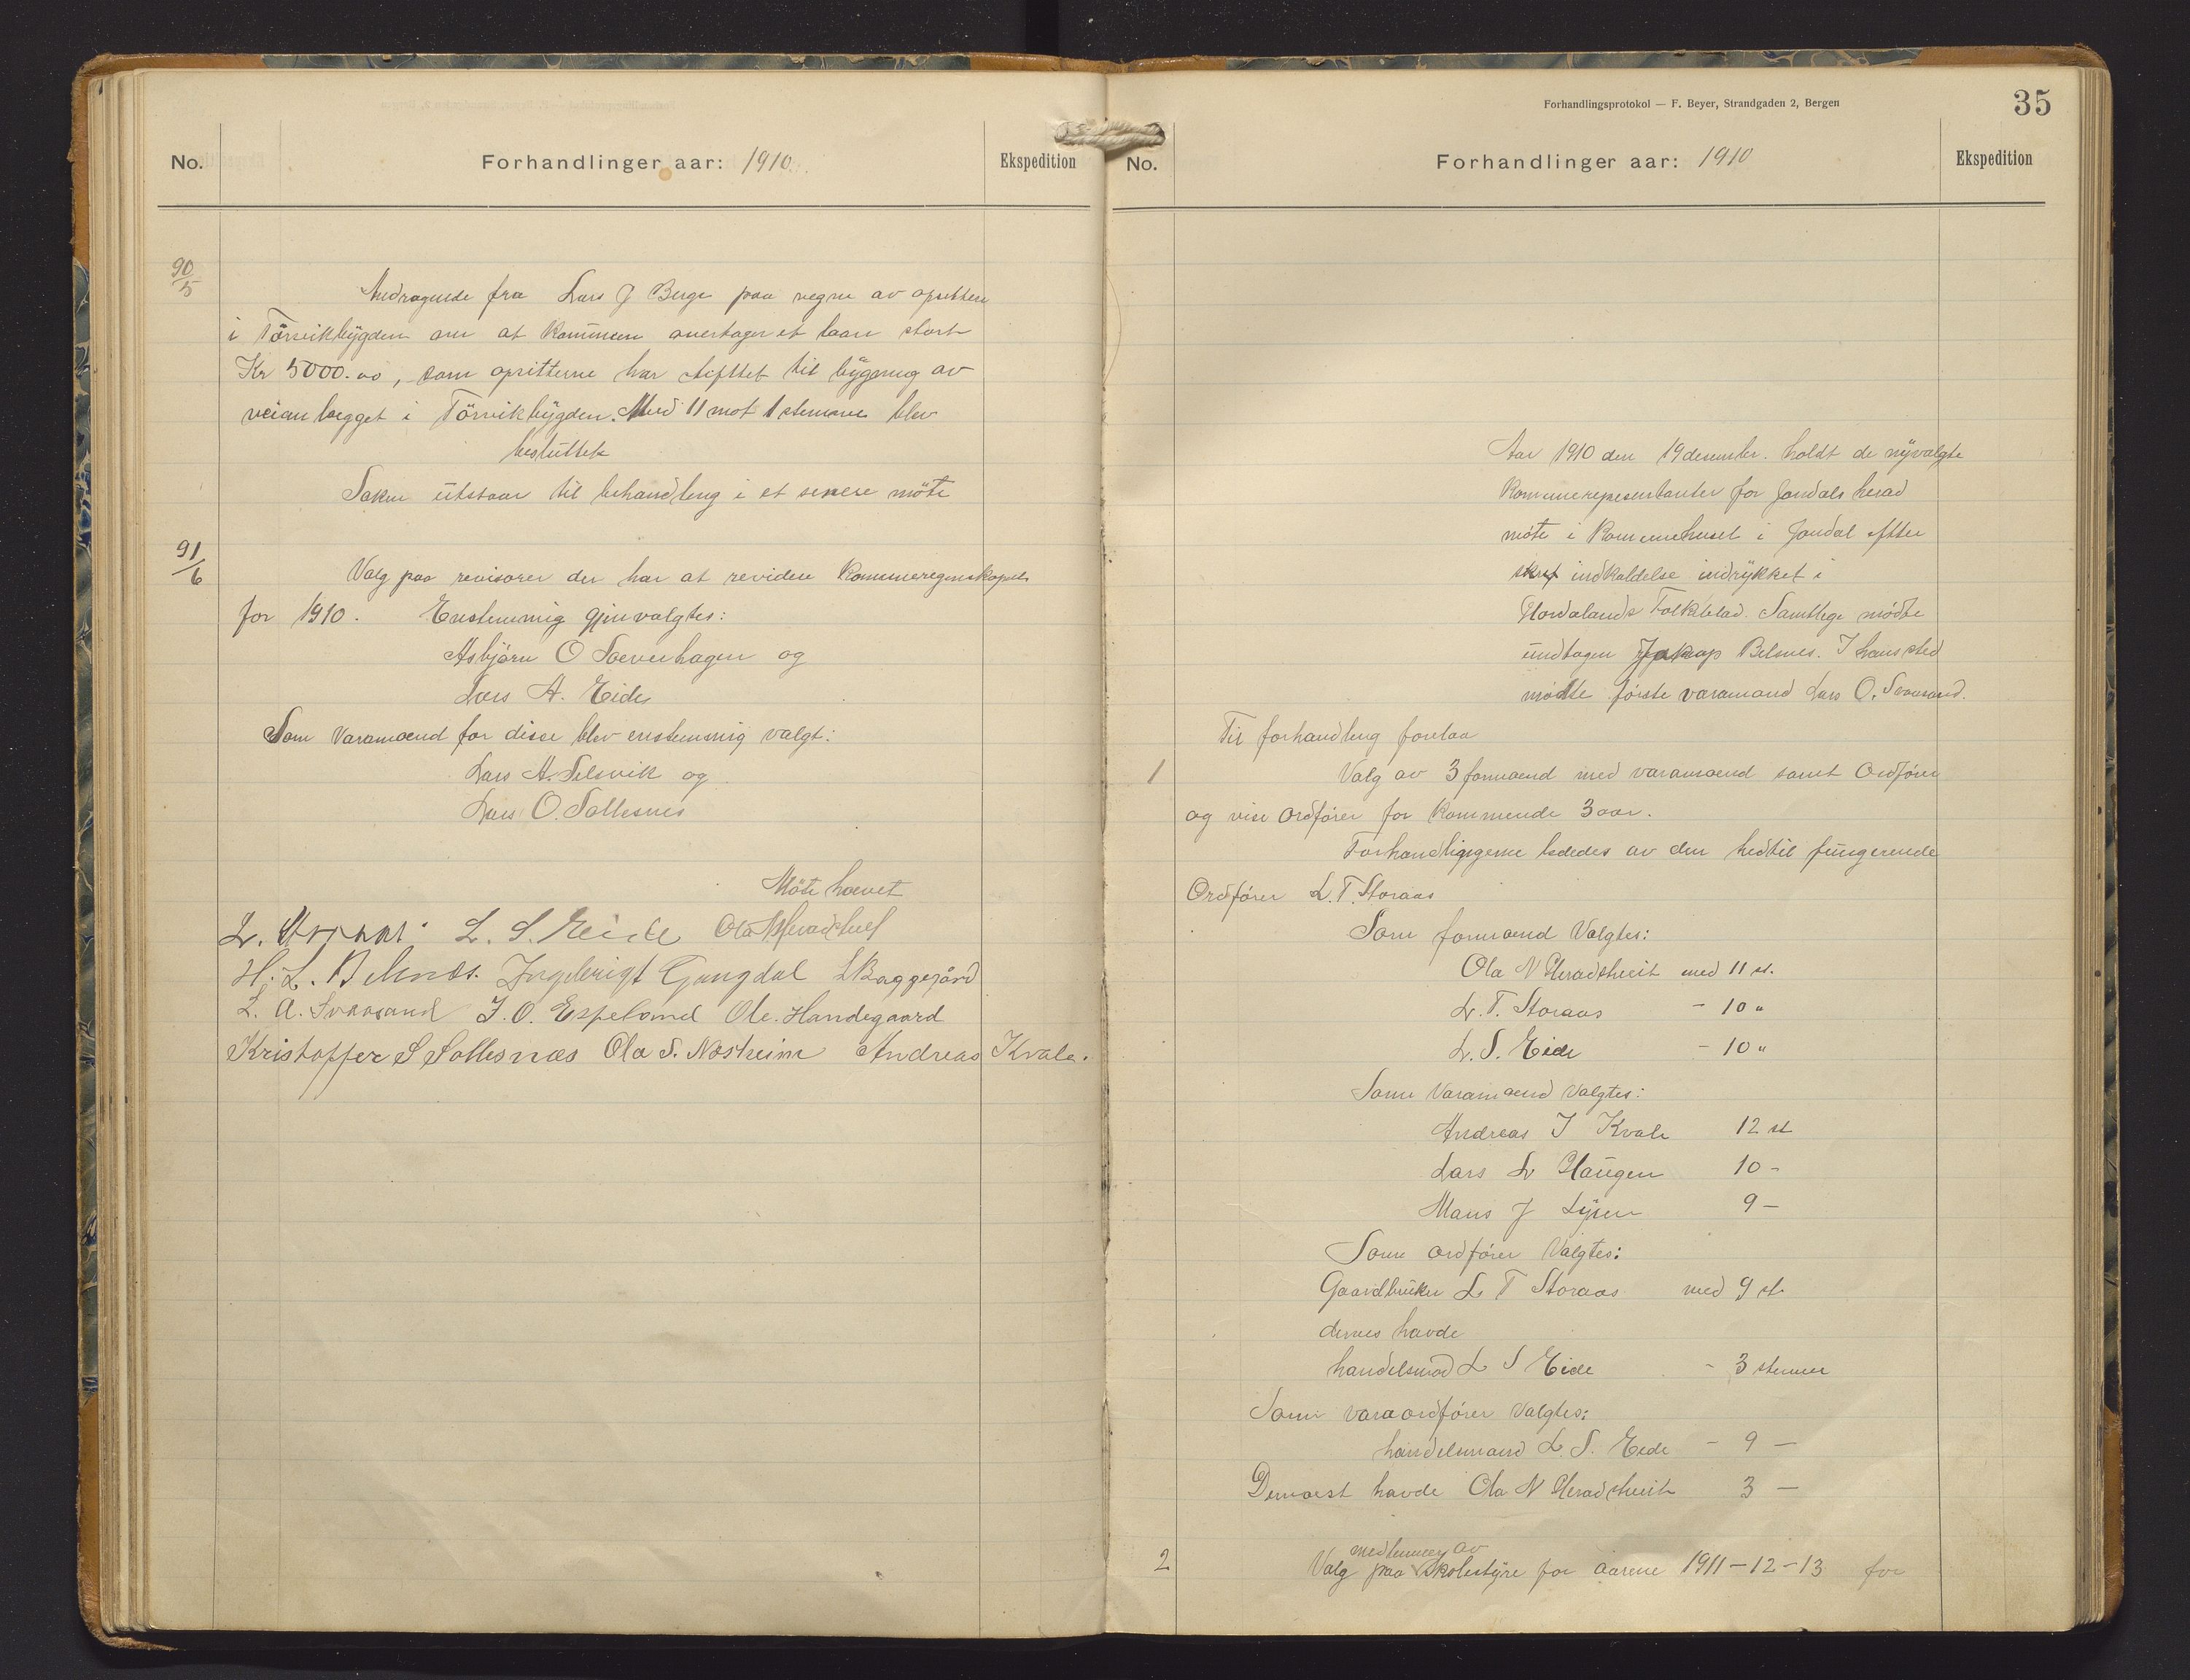 No.
Forhandlinger aar: 1910.
Ekspedition
90/5
Andragende fra Lars J Berge paa vegne av opsittere
i Törvikbygden om at kommunen overtager et laan stort
Kr 5000.00, som opsitterne har stiftet til bygning av
veianlegget i Törvikbygden. Med 11 mot 1 stemme blev
besluttet
Saken utstaar til behandling i et senere möte
91/6
Valg paa revisorer der har at revidere Kommuneregnskapet
for 1910. Enstemmig gjenvalgtes:
Asbjörn O Saeverhagen og
Lars A. Eide
Som Varamaend for disse blev enstemmig valgt:
Lars A. Selsvik og
Lars O. Sollesnes
Möte haevet
L. Storaas L. S. Eide Ola N Heradstveit
H. L. Belsnæs. Ingebrigt Gangdal L Baggegård
L. A. Svaasand J. O. Espeland Ole Handegaard
Kristoffer S Sollesnæs Ola S. Næsheim Andreas Kvale.
Forhandlingsprotokol — F. Beyer, Strandgaden 2, Bergen
35
No.
Forhandlinger aar: 1910
Ekspedition
Aar 1910 den 19 desember. holdt de nyvalgte
Kommunerepresentanter for Jondals herad
møte i Kommunehuset i Jondal efter
skrf indkaldelse indrykket i
Hordalands Folkblad. Samtlege mødte
undtagen Jakop Belsnes. I hans sted
mødte første varamand Lars O. Svaasand.
Til forhandling forelaa
1
Valg av 3 formaend med varamaend samt Ordfører
og vise ordfører for kommende 3 aar.
Forhandlingerne lededes av den hedtil fungerende
Ordfører L. T. Storaas
Som formaend Valgtes:
Ola N Heradstveit med 11 st.
L. T. Storaas - 10 "
L. S. Eide - 10 "
Som Varamaend Valgtes:
Andreas J Kvale 12 st
Lars L Haugen 10 -
Mans J Lysen 9 —
Som ordfører Valgtes:
Gaardbruker L T Storaas med 9 st
dernes havde
handelsmand L S Eide - 3 stemmer
Som varaordfører Valgtes:
handelsmand L. S. Eide - 9 —
Dernaest havde Ola N Heradstveit 3 —
2
medlemmer av
Valg paa skolestyre for aarene 1911-12-13 for